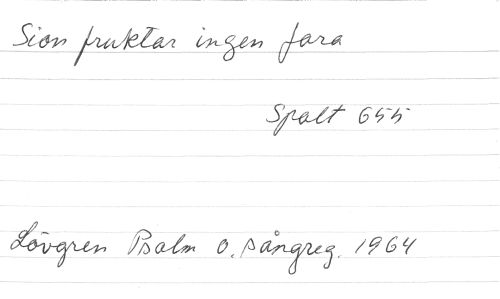 Sion fruktar ingen fara
Spalt 655
Lövgren Psalm o. sångreg. 1964